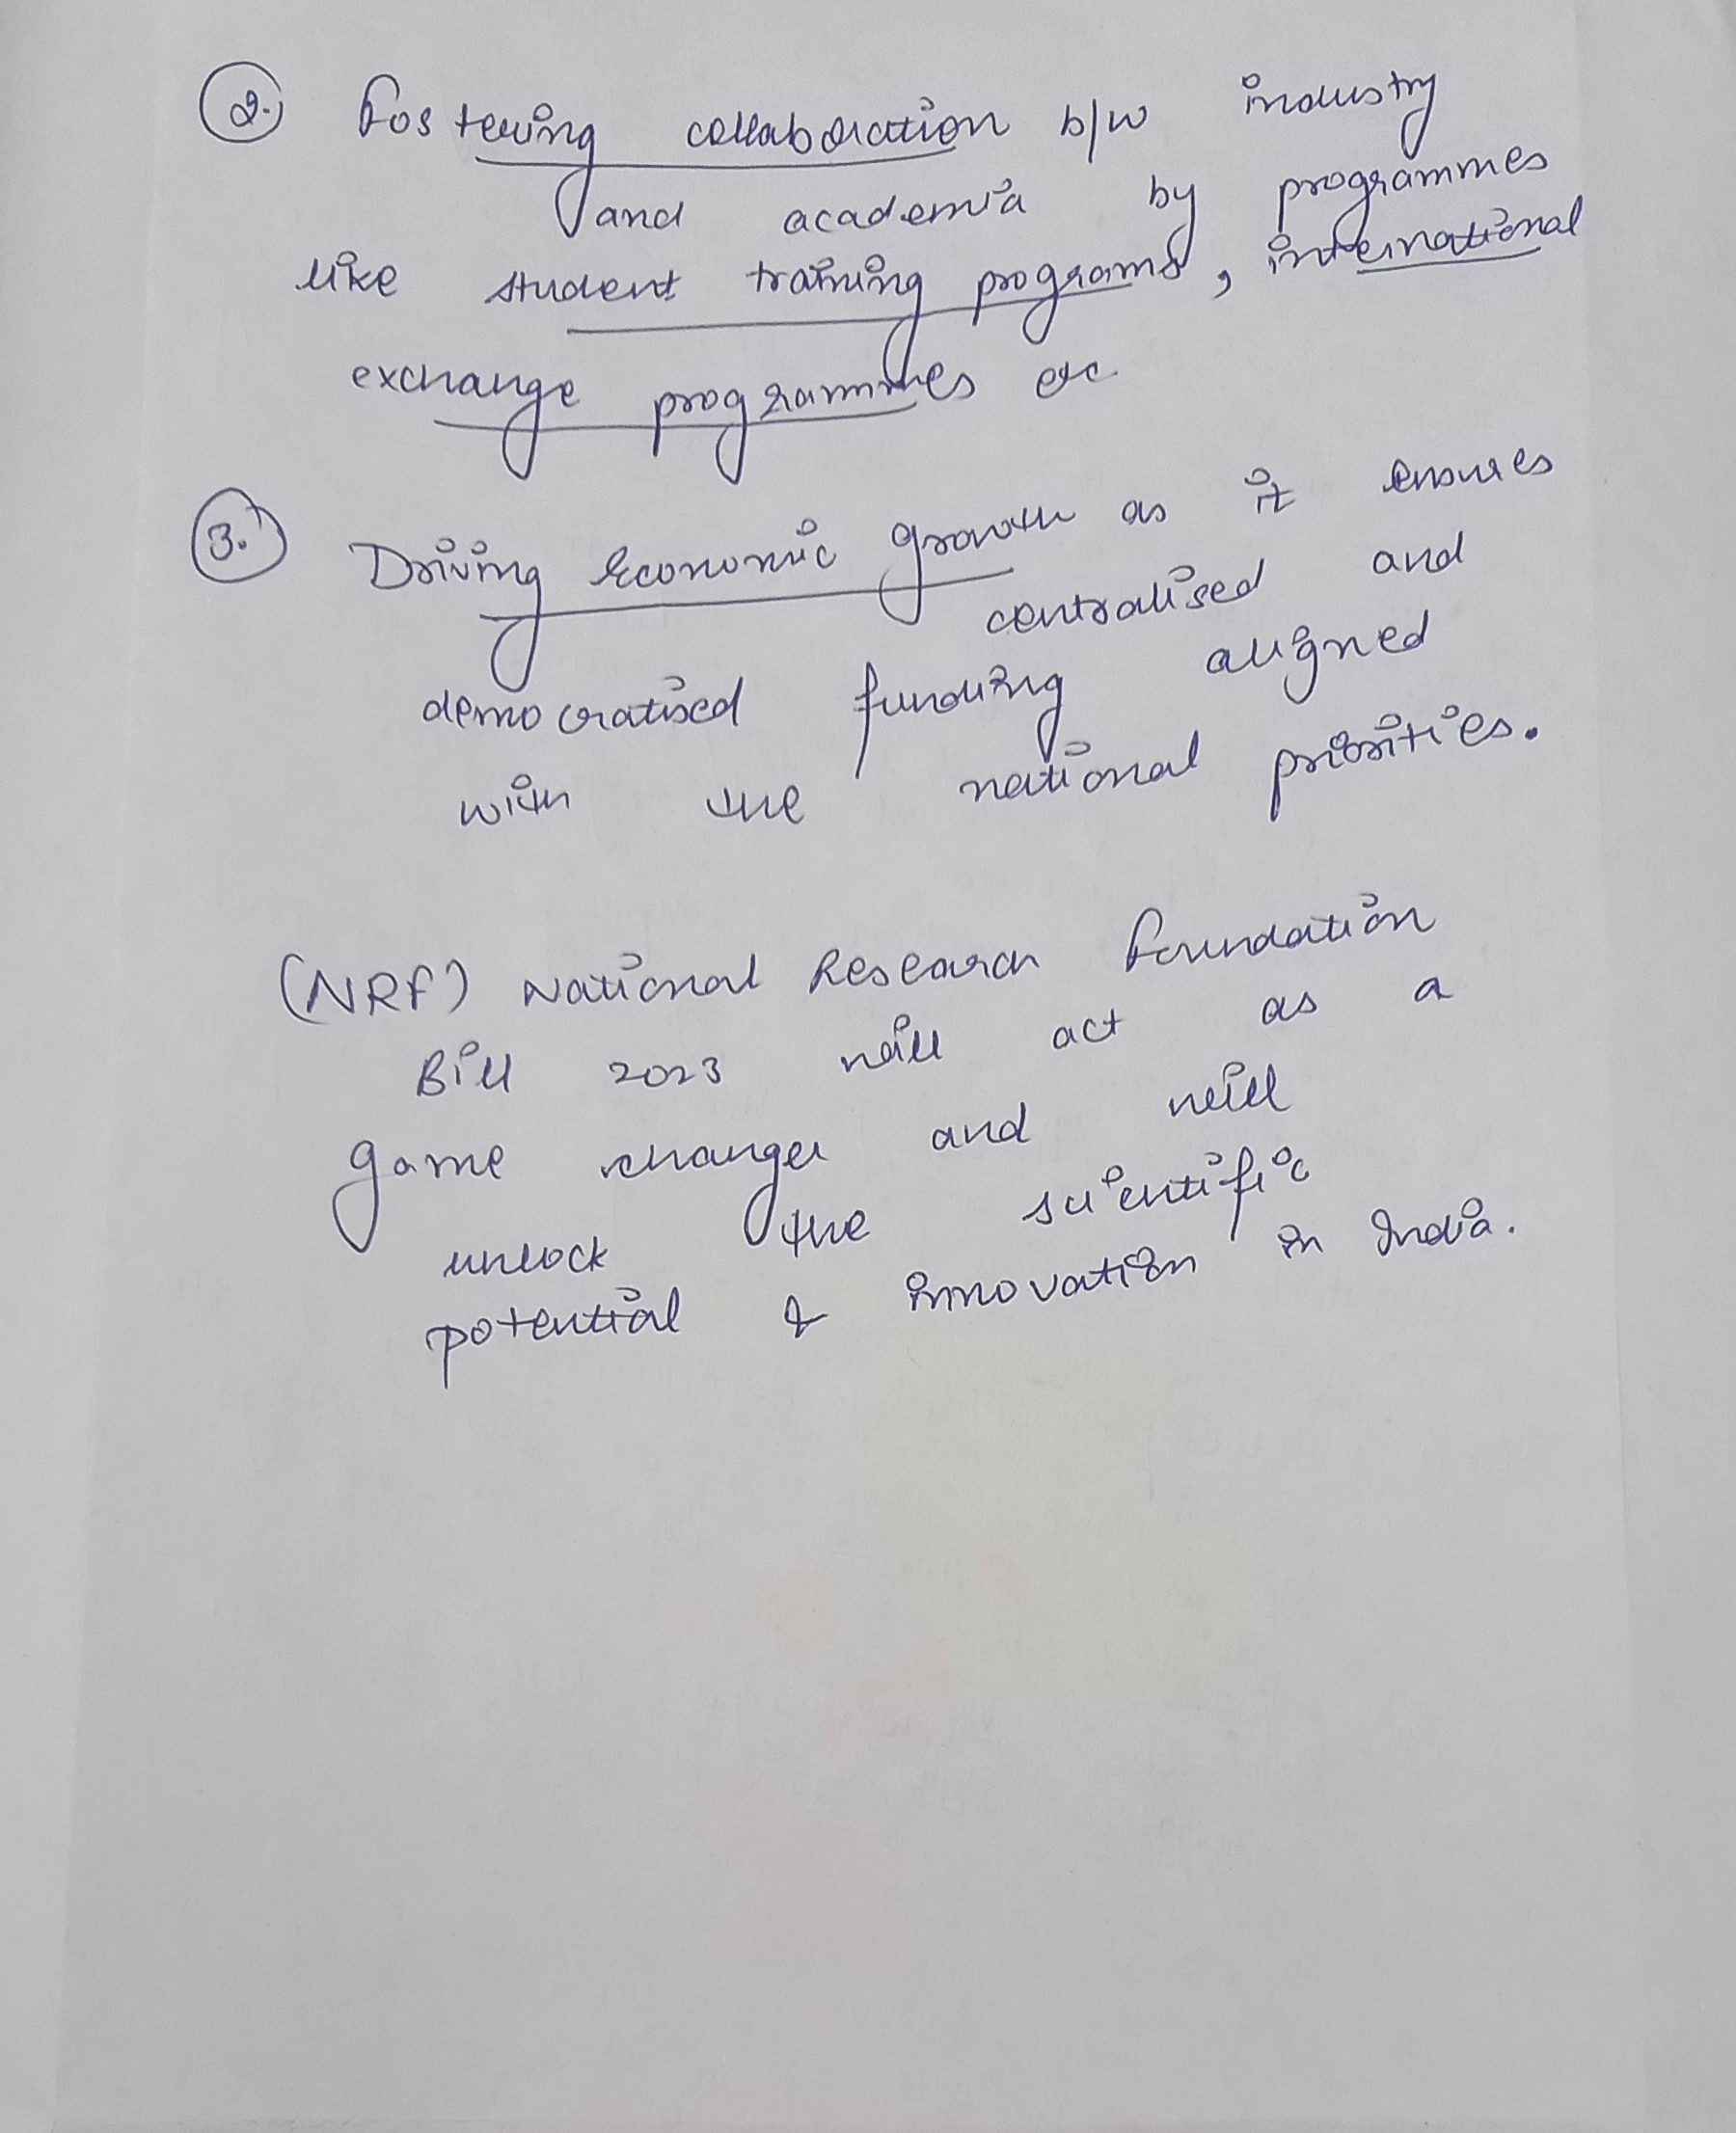 2. Fostering collaboration b/w industry
and academia by programmes
like student training programs, international
exchange programmes etc
3. Driving Economic growth as it ensures
centralised and
democratised funding aligned
with the national priorities.
(NRF) National Research Foundation
Bill 2023 will act as a
game changer and will
unlock the scientific
potential & innovation in India.